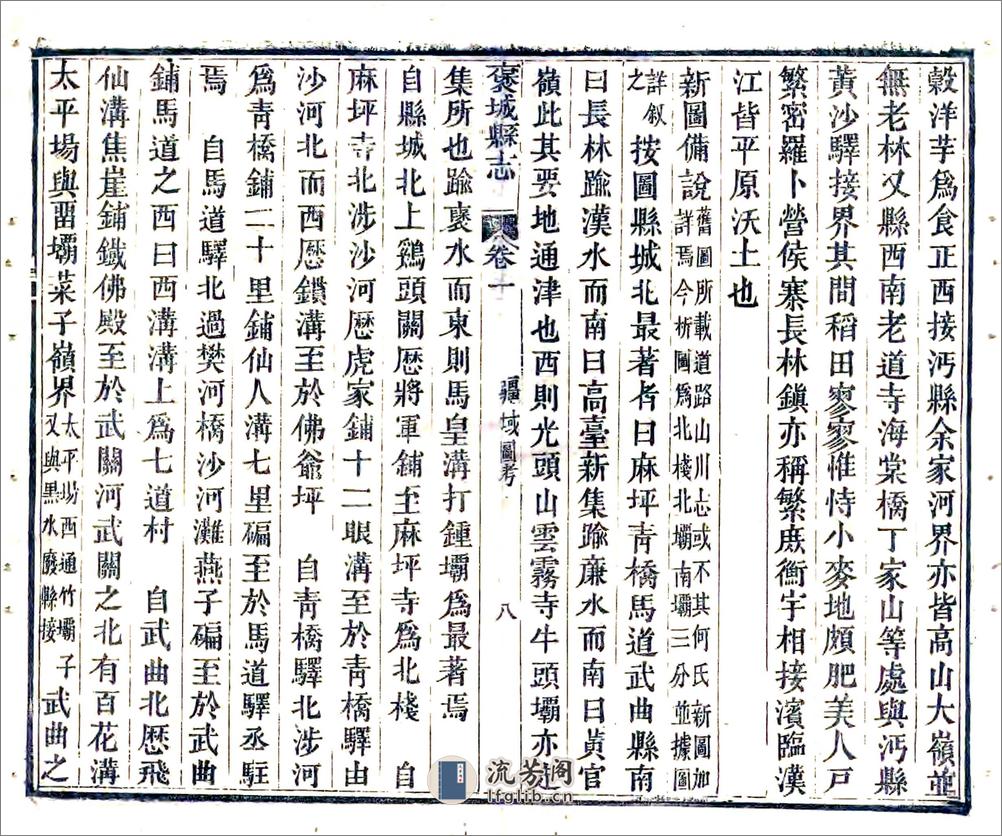 穀洋芋爲食正西接沔縣余家河界亦皆高山大嶺並
無老林又縣西南老道寺海棠橋丁家山等處與沔縣
黃沙驛接界其間稻田寥寥惟恃小麥地頗肥美人戸
繁密羅卜營侯寨長林鎮亦稱繁庶衡宇相接濱臨漢
江皆平原沃土也
新圖備說舊圖所載道路山川志或不其何氏新圖加
詳焉今析圖爲北棧北壩南壩三分並據圖
詳叙
之 按圖縣城北最著者曰麻坪青橋馬道武曲縣南
曰長林踰漢水而南曰高臺新集踰廉水而南曰黃官
嶺此其要地通津也西則光頭山雲霧寺牛頭壩亦
集所也踰褒水而東則馬皇溝打鍾壩爲最著焉
自縣城北上鷄頭關歷將軍鋪至麻坪寺爲北棧 自
麻坪寺北涉沙河歷虎家鋪十二眼溝至於青橋驛由
沙河北而西歷鎖溝至於佛爺坪 自青橋驛北涉河
爲青橋鋪二十里鋪仙人溝七里碥至於馬道驛丞駐
焉 自馬道驛北過樊河橋沙河灘燕子碥至於武曲
鋪馬道之西曰西溝上爲七道村 自武曲北歷飛
仙溝焦崖鋪鐵佛殿至於武關河武關之北有百花溝
太平場與畱壩菜子嶺界太平場西通竹壩子
又與黑水廢縣接 武曲之
褒城縣志 卷一 疆域圖考 八
流芳阁
lfglib.cn